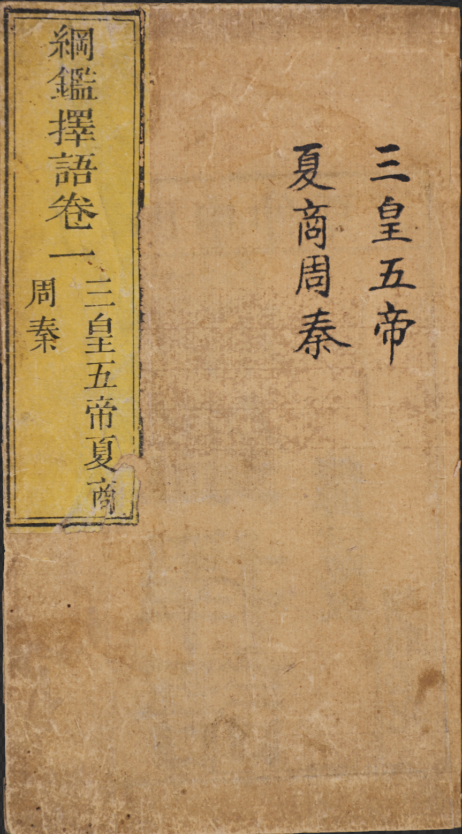 三皇五帝
夏商周秦
綱鑑擇語卷一
三皇五帝夏商
周秦